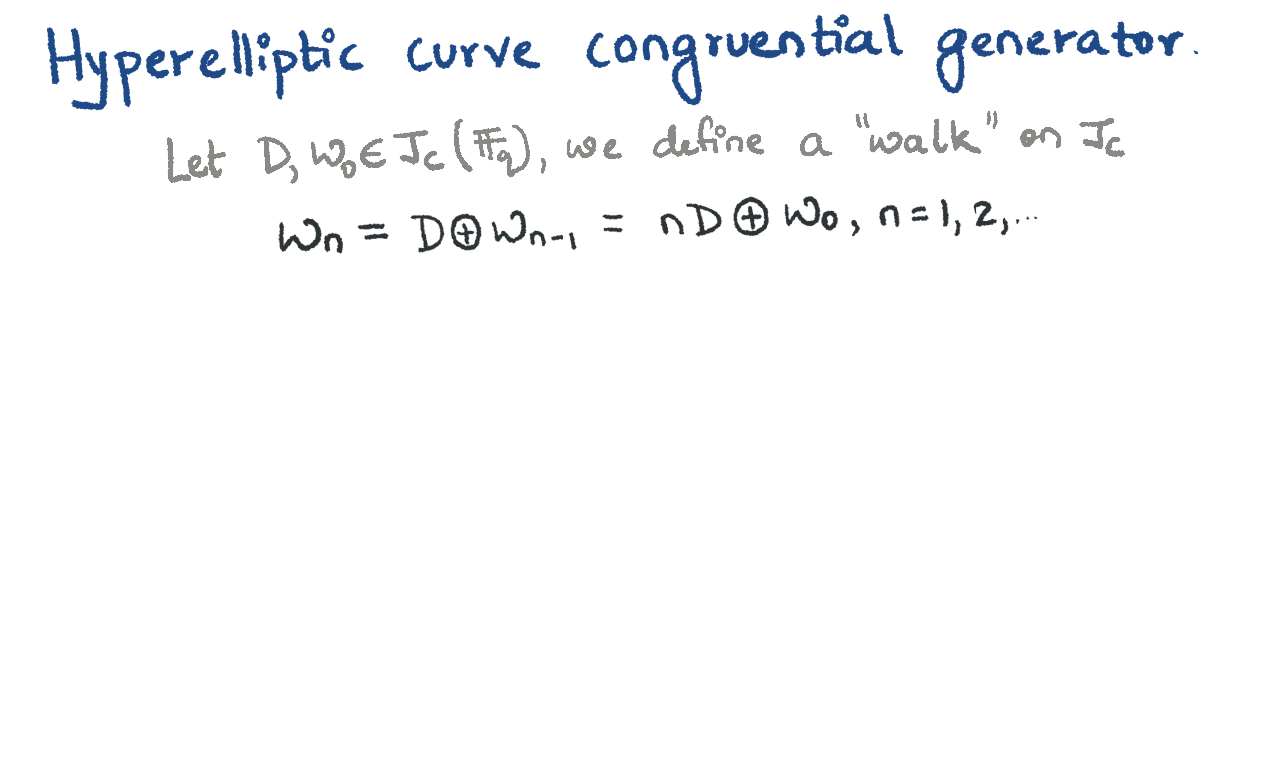 Hyperelliptic curve congruential generator.
Let D, W₀ ∈ J_C(𝔽_q), we define a "walk" on J_C
Wₙ = D ⊕ Wₙ₋₁ = nD ⊕ W₀, n = 1, 2, ...